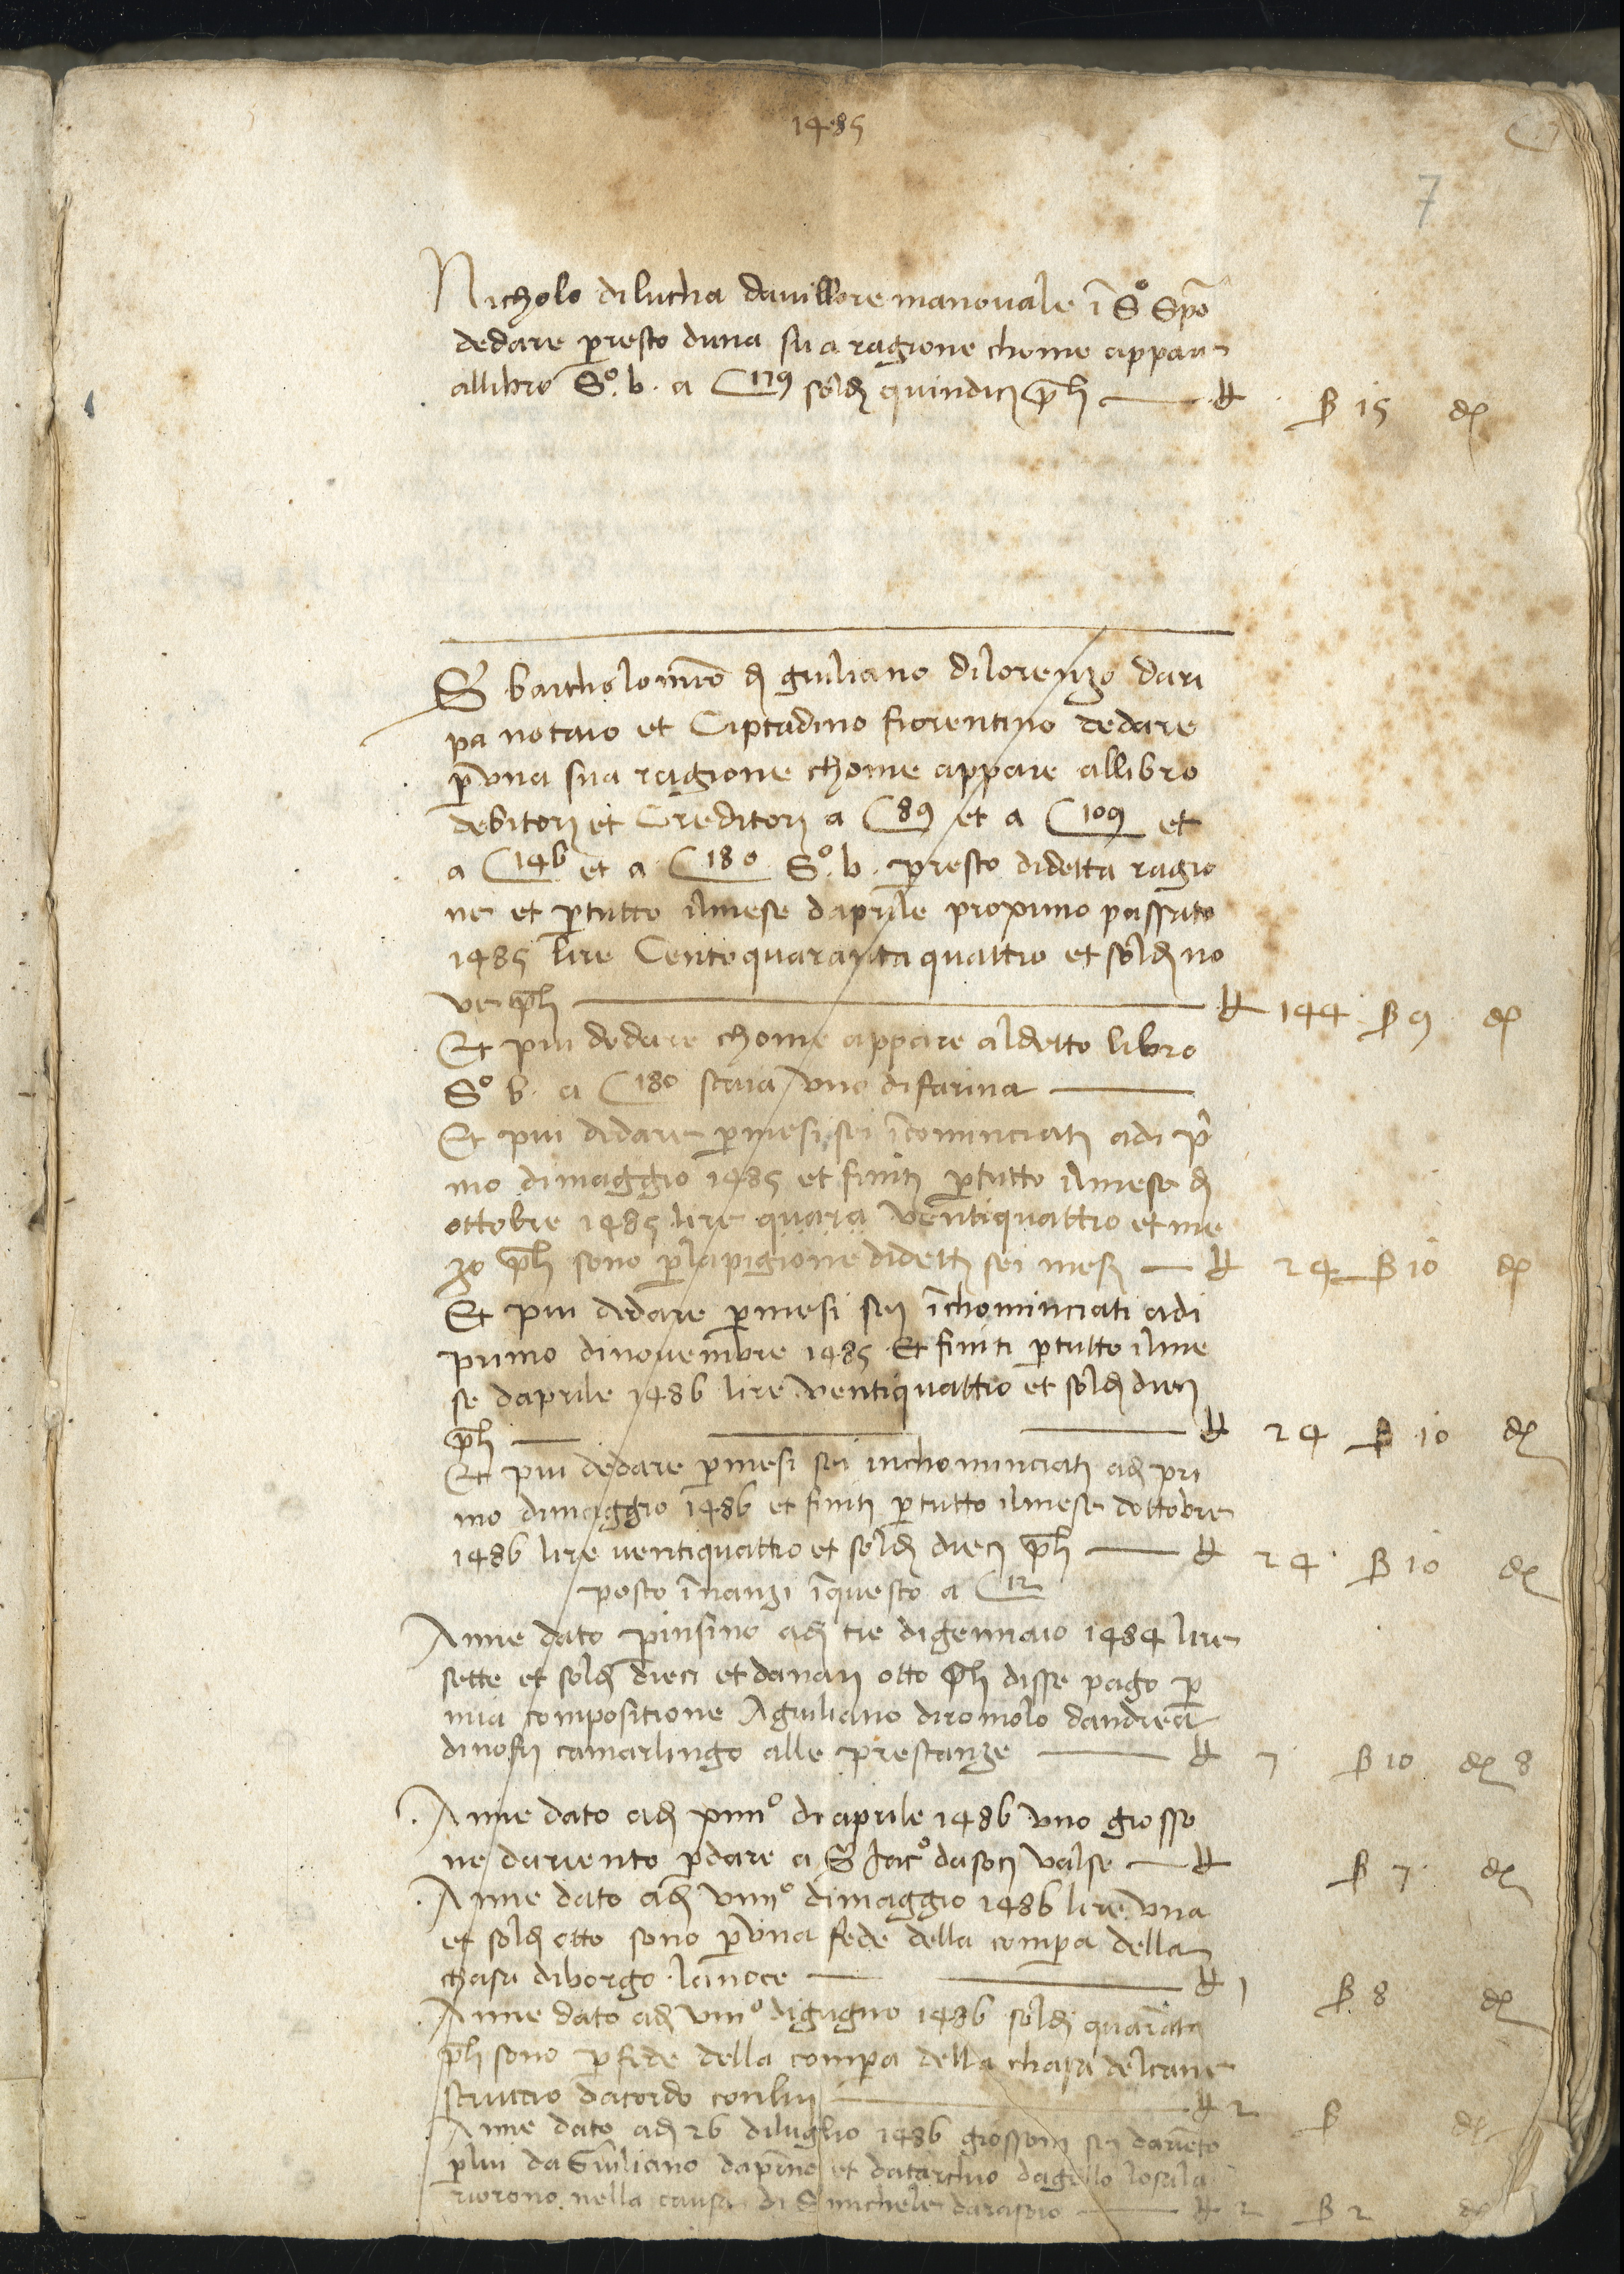 1485
7
Nicholo di lucha da uillore manouale ī Sº Spō
de dare p resto duna sua ragione chome appare
allibro Sº. b. a C 179 soldj quindicj p̄h — ₶ ß 15 dẹ
S bartholomeo dj giuliano di lorenzo da ri
pa notaio et Ciptadino fiorentino de dare
p una sua ragione chome appare allibro
debitorj et Creditorj a C 89 et a C 109 et
a C 146 et a C 180 Sº. b. p resto di detta ragio
ne et p tutto il mese daprile proximo passato
1485 lire Cento quaranta quattro et soldj no
ue p̄h — ₶ 144 ß 9 dẹ
Et piu de dare chome appare al detto libro
Sº b. a C 180 staia uno di farina —
Et piu de dare p mesi sei īcominciatj adi p̄
mo di maggio 1485 et finitj p tutto il mese dj
ottobre 1485 lire quara uentiquattro et me
zo p̄h sono p la pigione di dettj sei mesj — ₶ 24 ß 10 dẹ
Et piu de dare p mesi sej īchominciati adi
primo di nouembre 1485 Et finiti p tutto il me
se daprile 1486 lire uentiquattro et soldj diecj
p̄h — ₶ 24 ß 10 dẹ
Et piu de dare p mesi sei inchominciatj adj pri
mo di maggio 1486 et finitj p tutto il mese dottobre
1486 lire uentiquattro et soldj diecj p̄h — ₶ 24 ß 10 dẹ
posto īnanzi īquesto a C 12
Anne dato p insino adj tre di gennaio 1484 lire
sette et soldj dieci et danarj otto p̄h disse pago p
mia compositione A giuliano di romolo dandrea
di nofrj camarlingo alle prestanze — ₶ 7 ß 10 dẹ 8
Anne dato adj xiiiº di aprile 1486 uno grosso
ne dariento p dare a S Jacº da socj ualse — ₶ ß 7 dẹ
Anne dato adj viiiº di maggio 1486 lire una
et soldj otto sono p una fede della compa della
chasa di borgo la noce — ₶ 1 ß 8 dẹ
Anne dato adj viiiº di gugno 1486 soldj quarāta
p̄h sono p fede della compa della chasa del cane
struccio dacordo conluj — ₶ 2 ß dẹ
Anne dato adj 26 di luglio 1486 grossonj sei dariēto
p lui da Giuliano et
nella causa di S michele — ₶ 2 ß 2 dẹ